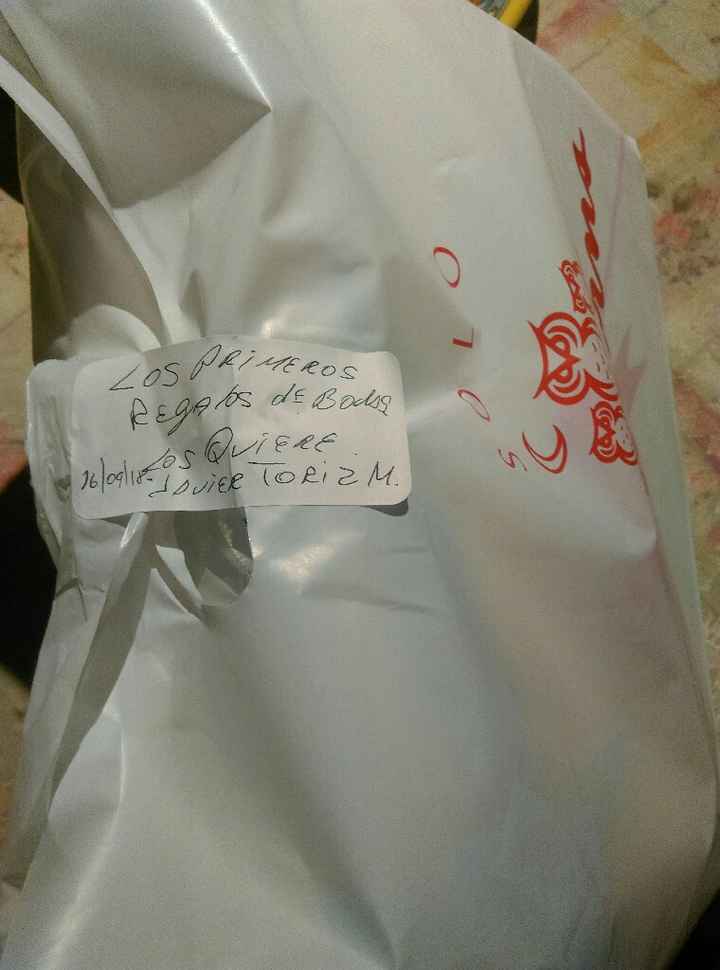 LOS PRIMEROS
REGALOS dE Bodas
LOS QUIERE
16/09/18- JAVIER TORIZ M.
SOLO